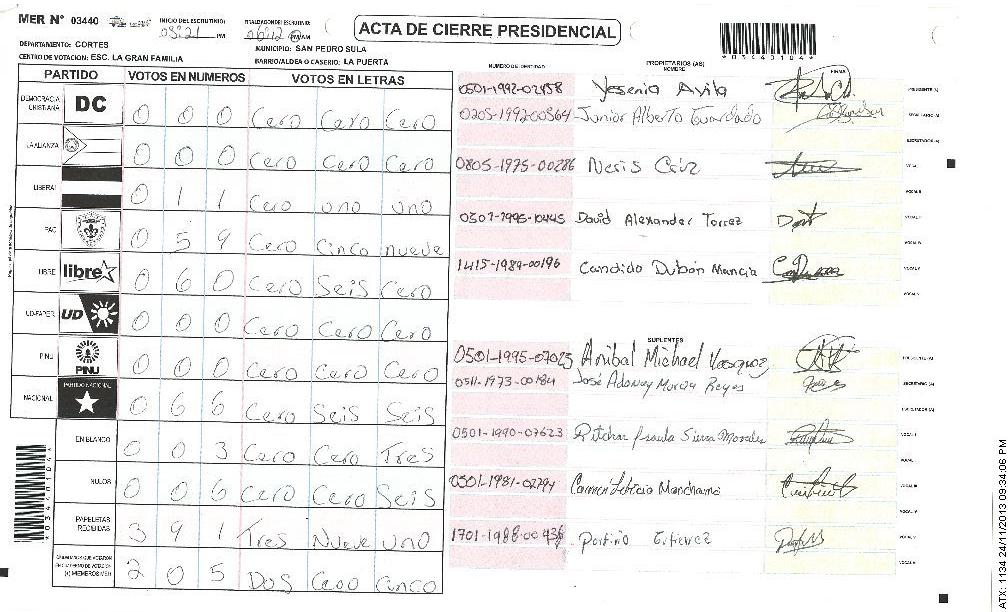 MER N° 03440
INICIO DEL ESCRUTINIO
ACTA DE CIERRE PRESIDENCIAL
DEPARTAMENTO: CORTES
MUNICIPIO: SAN PEDRO SULA
CENTRO DE VOTACION: ESC. LA GRAN FAMILIA
BARRIO/ALDEA O CASERIO: LA PUERTA
PARTIDO VOTOS EN NUMEROS VOTOS EN LETRAS
DEMOCRACIA CRISTIANA DC 0 0 0 Cero Cero Cero
LA ALIANZA 0 0 0 Cero Cero Cero
LIBERAL 0 1 1 Cero uno uno
PAC 0 5 9 Cero Cinco nueve
LIBRE libre 0 6 0 Cero Seis Cero
UD-FAPER UD 0 0 0 Cero Cero Cero
PINU PINU 0 0 0 Cero Cero Cero
NACIONAL PARTIDO NACIONAL 0 6 6 Cero Seis Seis
EN BLANCO 0 0 3 Cero Cero Tres
NULOS 0 0 6 Cero Cero Seis
PAPELETAS RECIBIDAS 3 9 1 Tres Nueve uno
2 0 5 Dos Cero Cinco
NUMERO DE IDENTIDAD PROPIETARIOS (AS) NOMBRE FIRMA
0501-1992-02458 Yesenia Avila PRESIDENTE (A)
0205-1992-00564 Junior Alberto Guardado SECRETARIO (A)
ESCRUTADOR (A)
0805-1975-00286 Neris Cruz VOCAL I
VOCAL II
0501-1995-10445 David Alexander Torrez
1415-1989-00196 Candido Dubón Mancia
SUPLENTES
0501-1995-07023 Anibal Michael Vasquez PRESIDENTE (A)
0511-1973-00184 José Adonay Murcia Reyes SECRETARIO (A)
ESCRUTADOR (A)
0501-1990-07623 Sierra Morales
Carmen Leticia Manchame
1701-1988-00436
*03440104*
*03440104*
ATX: 1134 24/11/2013 09:34:06 PM